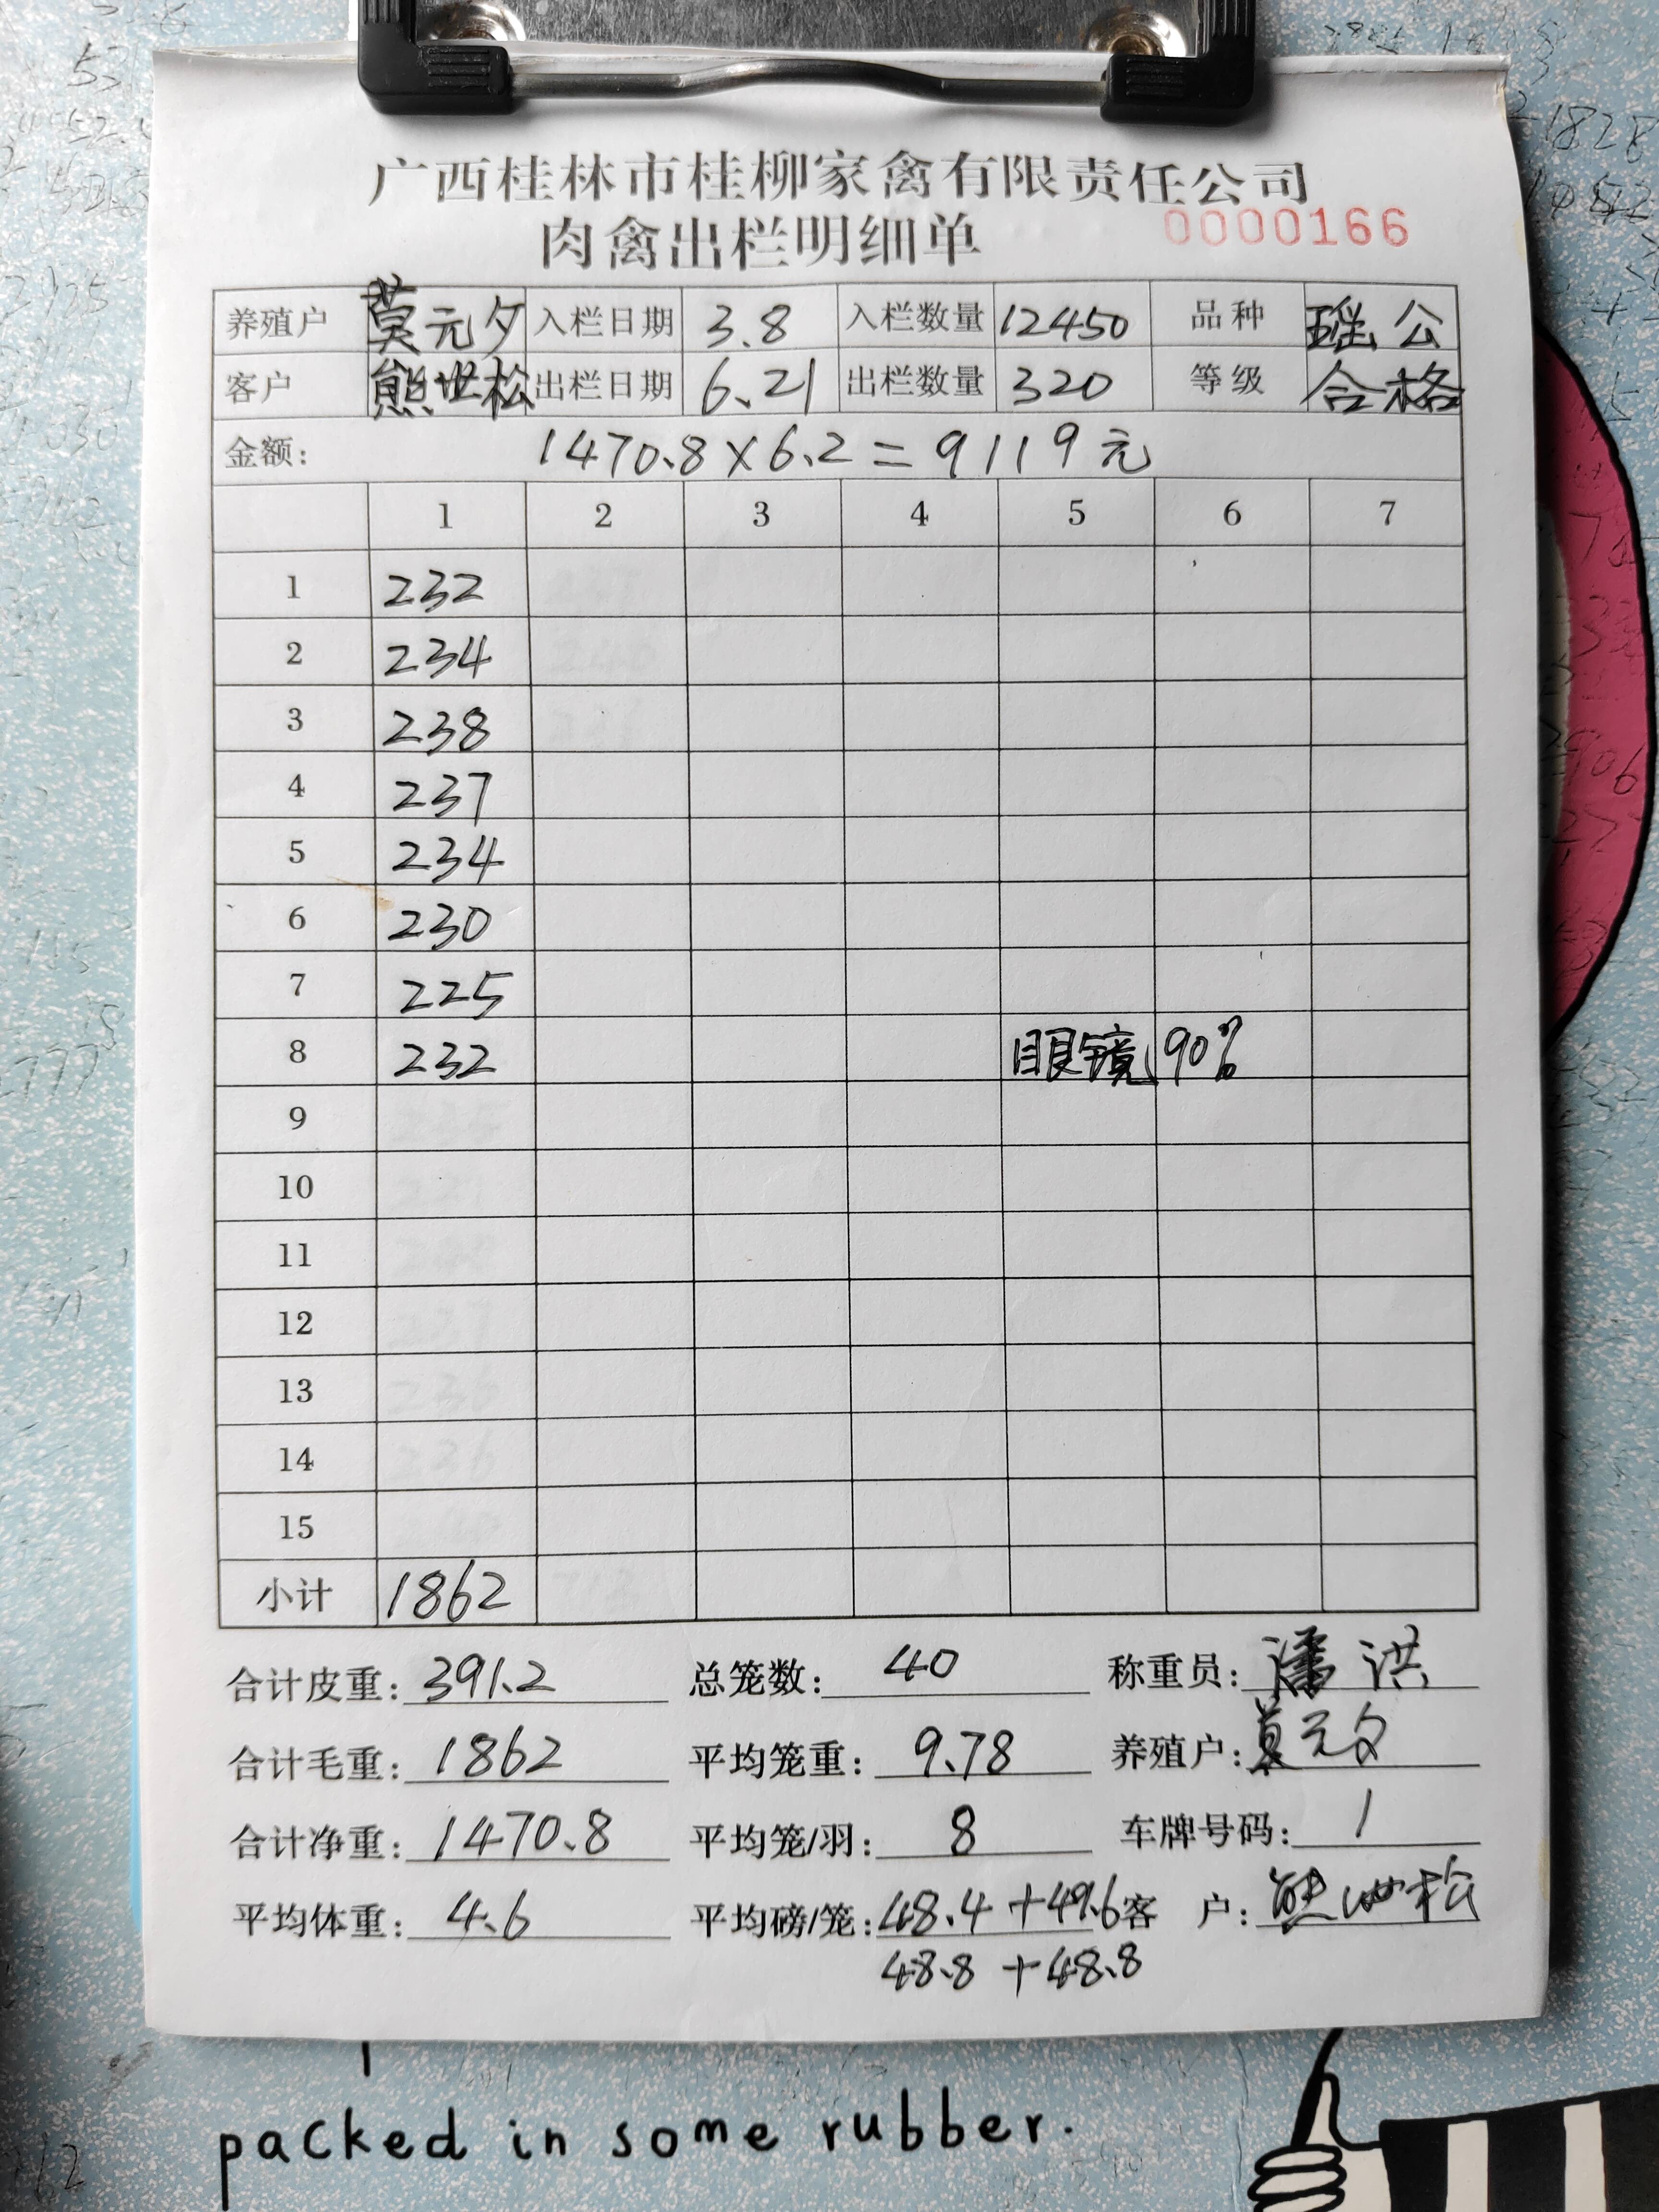 广西桂林市桂柳家禽有限责任公司
肉禽出栏明细单 0000166
养殖户 莫元夕 入栏日期 3.8 入栏数量 12450 品种 瑶公
客户 熊世松 出栏日期 6.21 出栏数量 320 等级 合格
金额: 1470.8×6.2=9119元
1 2 3 4 5 6 7
1 232
2 234
3 238
4 237
5 234
6 230
7 225
8 232 眼镜 90%
9
10
11
12
13
14
15
小计 1862
合计皮重: 391.2 总笼数: 40 称重员: 潘洪
合计毛重: 1862 平均笼重: 9.78 养殖户: 莫元夕
合计净重: 1470.8 平均笼/羽: 8 车牌号码: 1
平均体重: 4.6 平均磅/笼: 48.4+49.6 客户: 熊世松
48.8+48.8
packed in some rubber.